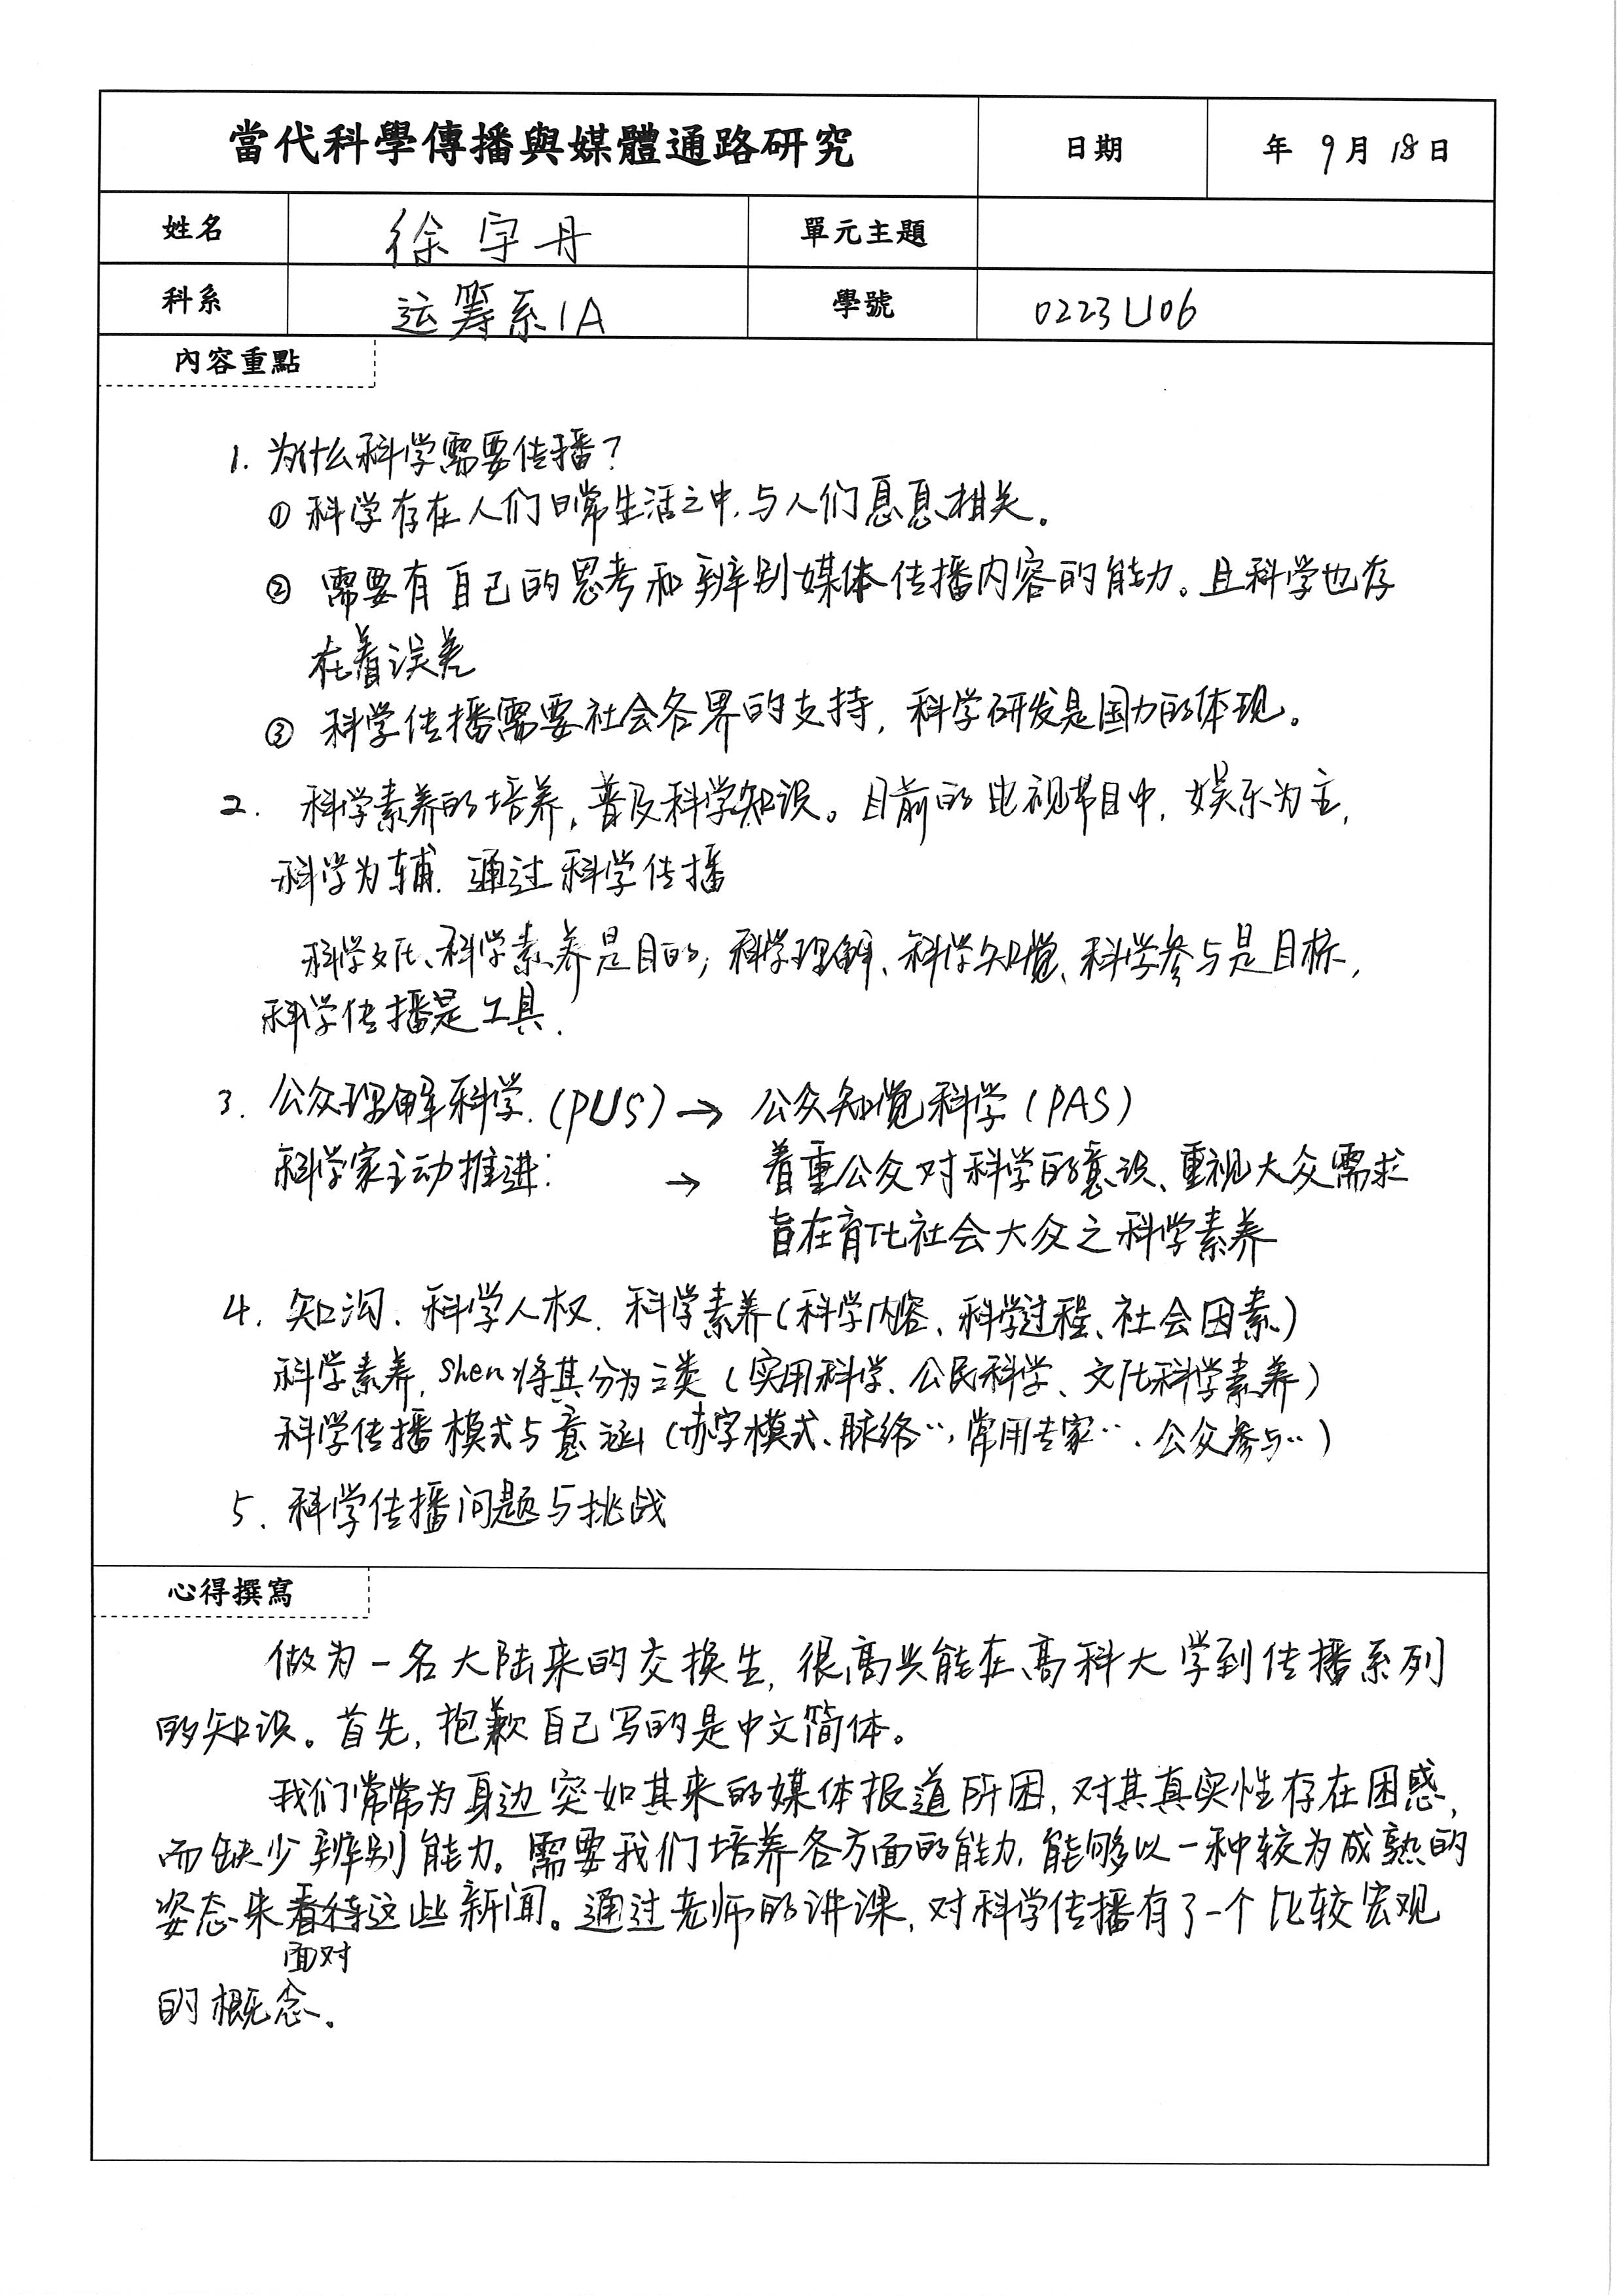 當代科學傳播與媒體通路研究 日期 年 9月 18日
姓名 徐宇丹 單元主題
科系 运筹系1A 學號 0223U06
內容重點
1. 为什么科学需要传播？
① 科学存在人们日常生活之中，与人们息息相关。
② 需要有自己的思考和辨别媒体传播内容的能力。且科学也存
在着误差
③ 科学传播需要社会各界的支持，科学研发是国力的体现。
2. 科学素养的培养，普及科学知识。目前的电视节目中，娱乐为主，
科学为辅．通过科学传播
科学文化、科学素养是目的；科学理解、科学知觉、科学参与是目标，
科学传播是工具．
3. 公众理解科学．(PUS) → 公众知觉科学 (PAS)
科学家主动推进： → 着重公众对科学的意识、重视大众需求
旨在育化社会大众之科学素养
4. 知沟．科学人权．科学素养(科学内容、科学过程、社会因素)
科学素养，Shen将其分为三类 (实用科学、公民科学、文化科学素养)
科学传播模式与意涵 (赤字模式、脉络‥，常用专家‥、公众参与‥)
5. 科学传播问题与挑战
心得撰寫
做为一名大陆来的交换生，很高兴能在高科大学到传播系列
的知识。首先，抱歉自己写的是中文简体。
我们常常为身边突如其来的媒体报道所困，对其真实性存在困惑，
而缺少辨别能力。需要我们培养各方面的能力，能够以一种较为成熟的
姿态来看待这些新闻。通过老师的讲课，对科学传播有了一个比较宏观
面对
的概念。